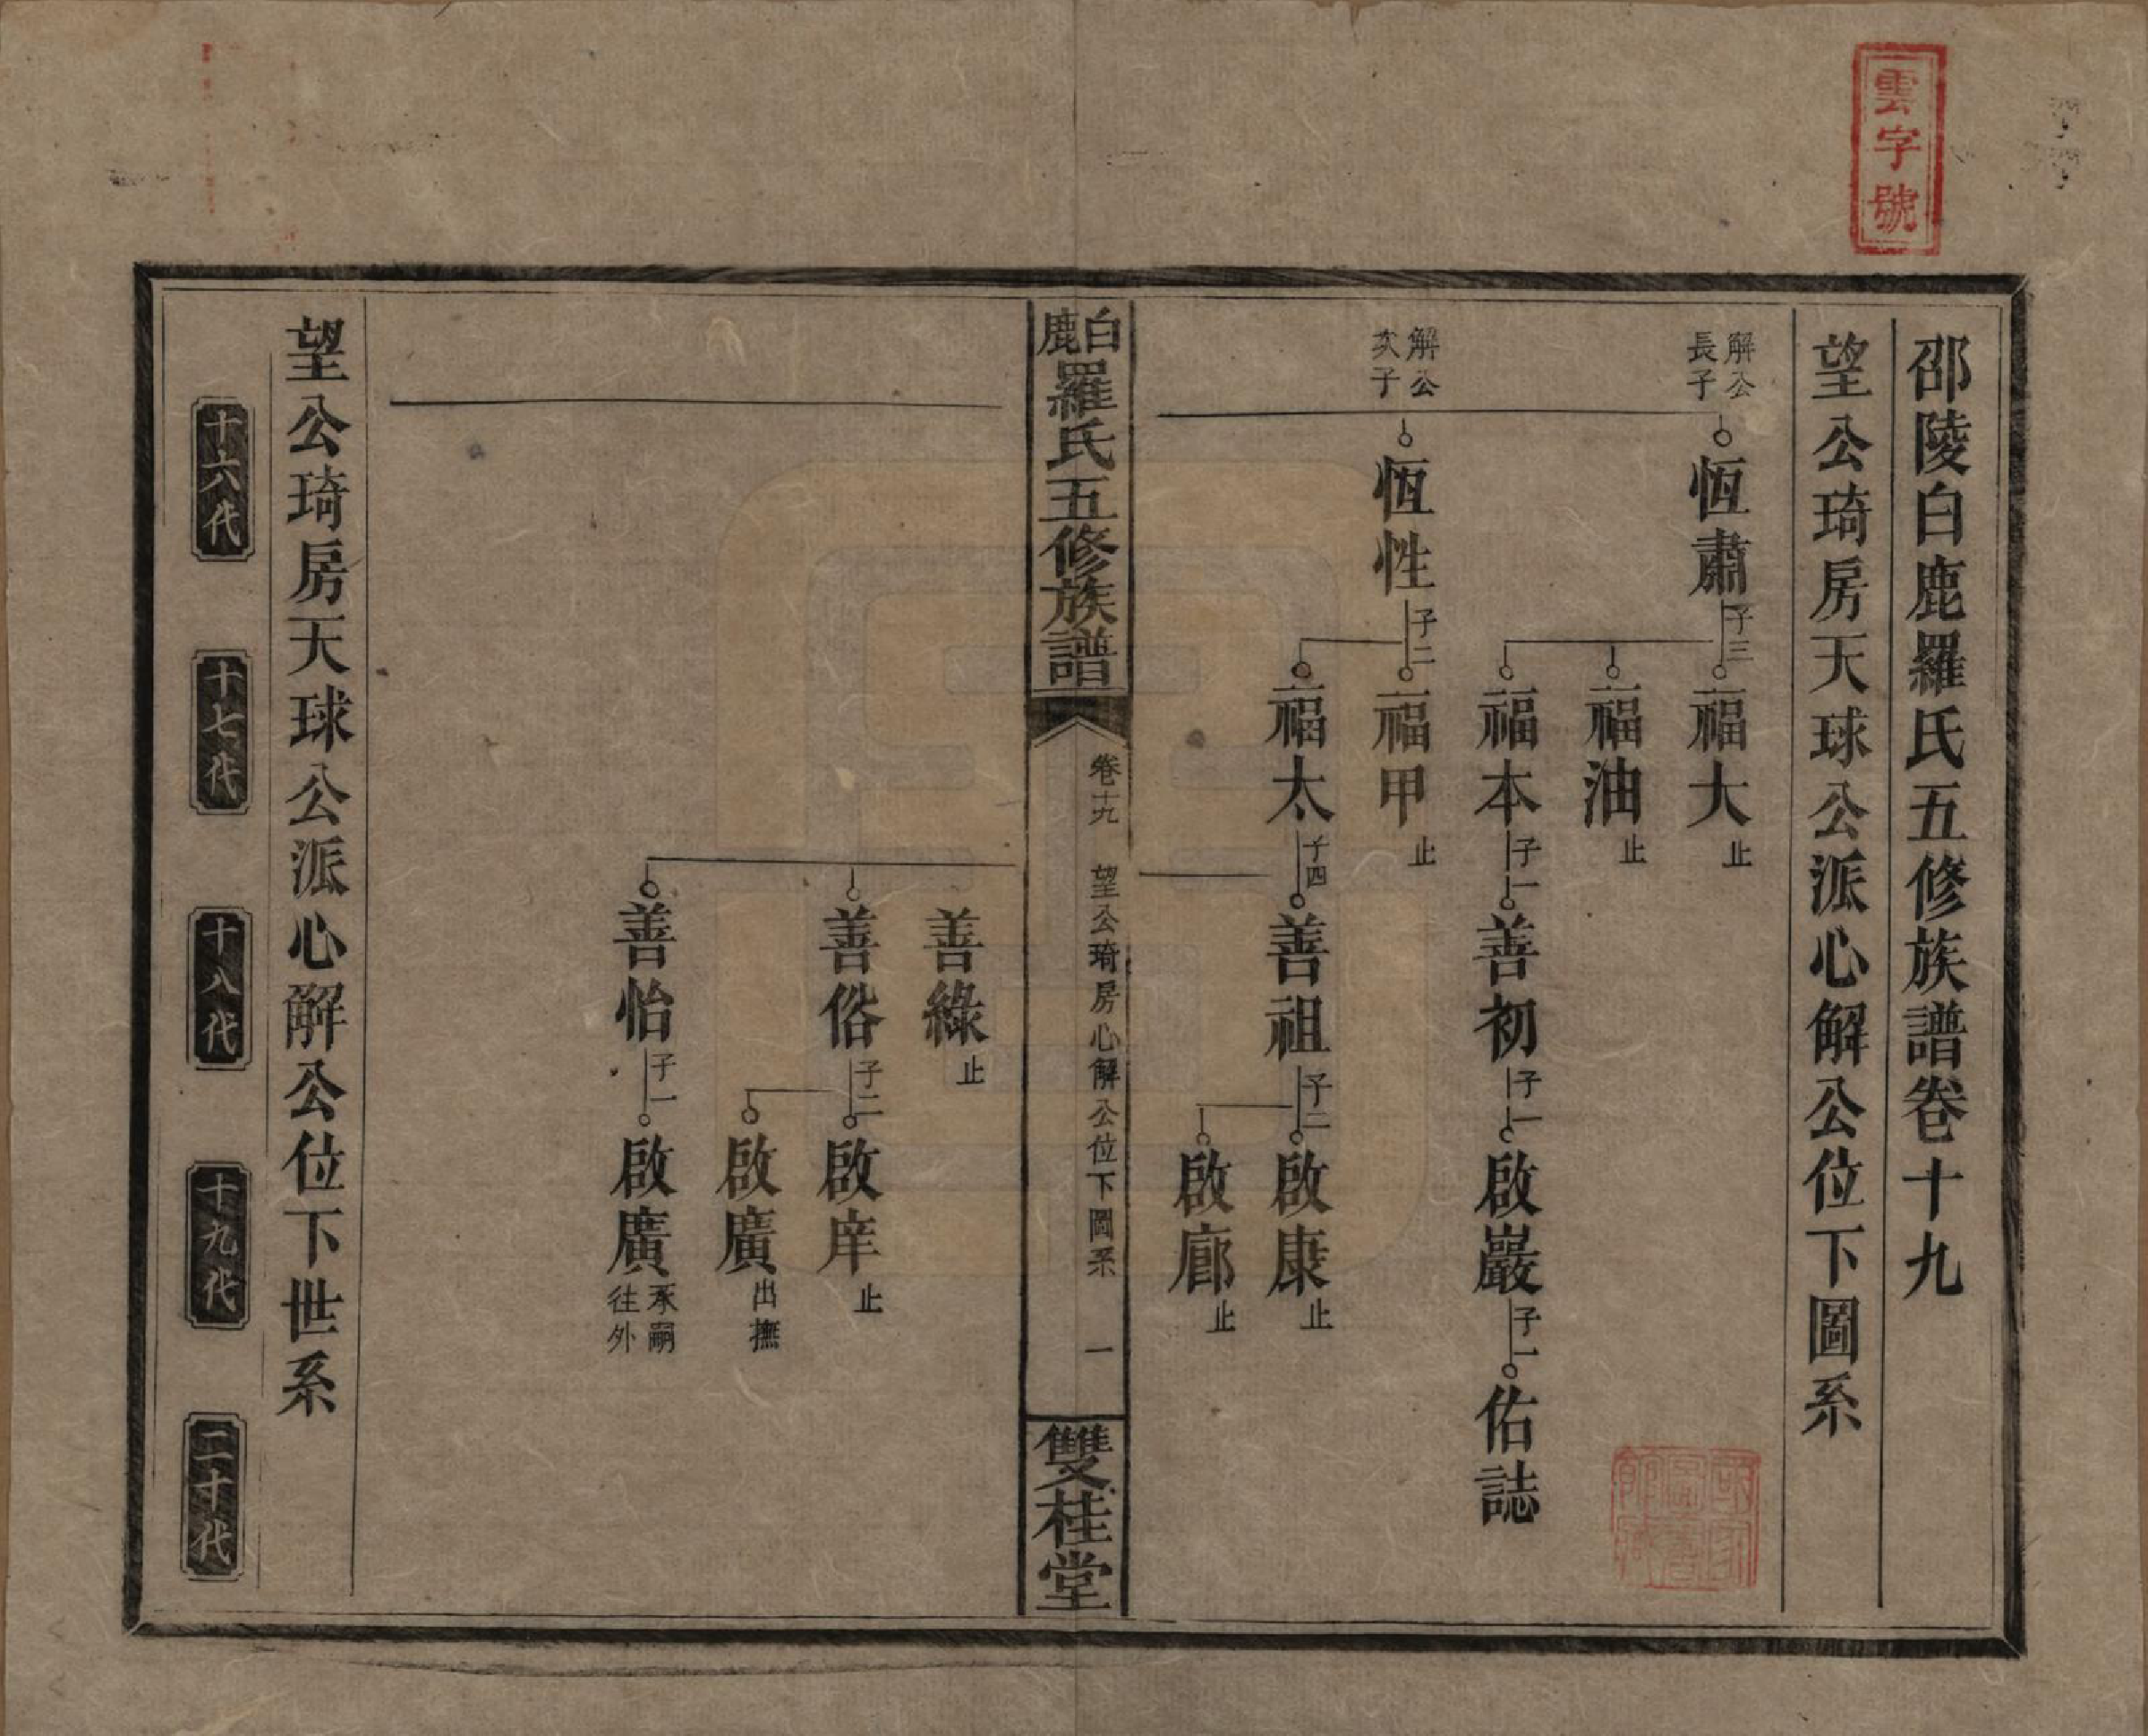 雲字號
邵陵白鹿羅氏五修族譜卷十九
望公琦房天球公派心解公位下圖系
解公長子
恆肅 子三
福大 止
福油 止
福本 子一
善初 子一
啟巖 子一
佑誌
解公次子
恆性 子二
福甲 止
福太 子四
善祖 子二
啟康 止
啟廊 止
白鹿羅氏五修族譜
卷十九 望公琦房心解公位下圖系 一
雙桂堂
善綠 止
善俗 子二
啟庠 止
啟廣 出撫
善怡 子一
啟廣 承嗣往外
望公琦房天球公派心解公位下世系
十六代
十七代
十八代
十九代
二十代